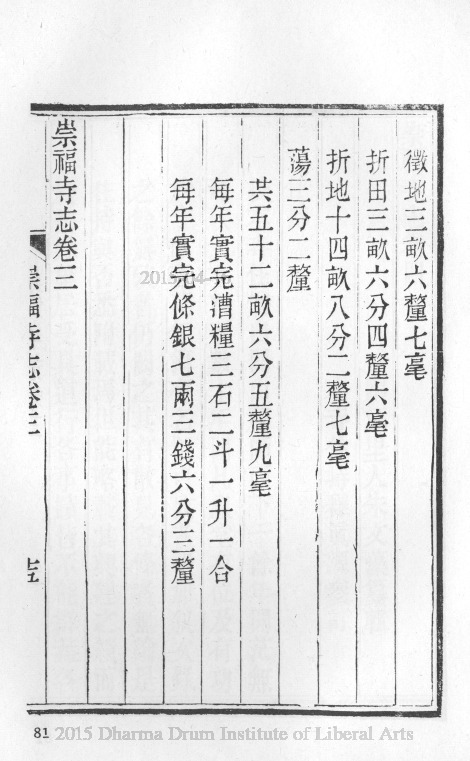 徵地三畝六釐七毫
折田三畝六分四釐六毫
折地十四畝八分二釐七毫
蕩三分二釐
共五十二畝六分五釐九毫
每年實完漕糧三石二斗一升一合
每年實完條銀七兩三錢六分三釐
崇福寺志卷三
崇福寺志卷三
81 2015 Dharma Drum Institute of Liberal Arts